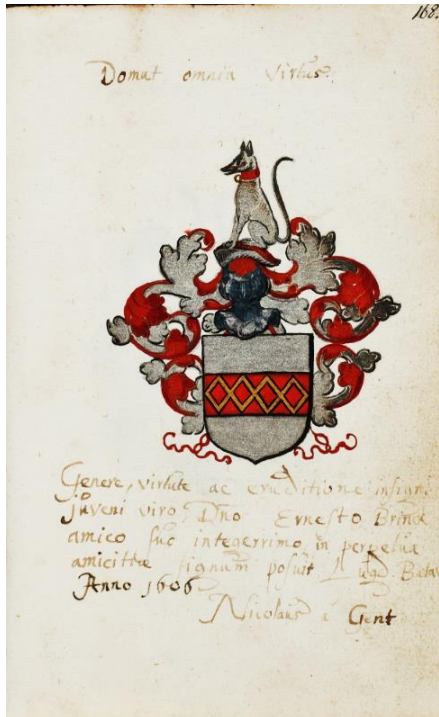 168
Domat omnia Virtus.
Genere, virtute ac eruditione insigni
juveni viro, Dno Ernesto Brinck
amico suo integerrimo in perpetuae
amicitiae signum posuit Lugd. Batav
Anno 1606
Nicolaus à Gent